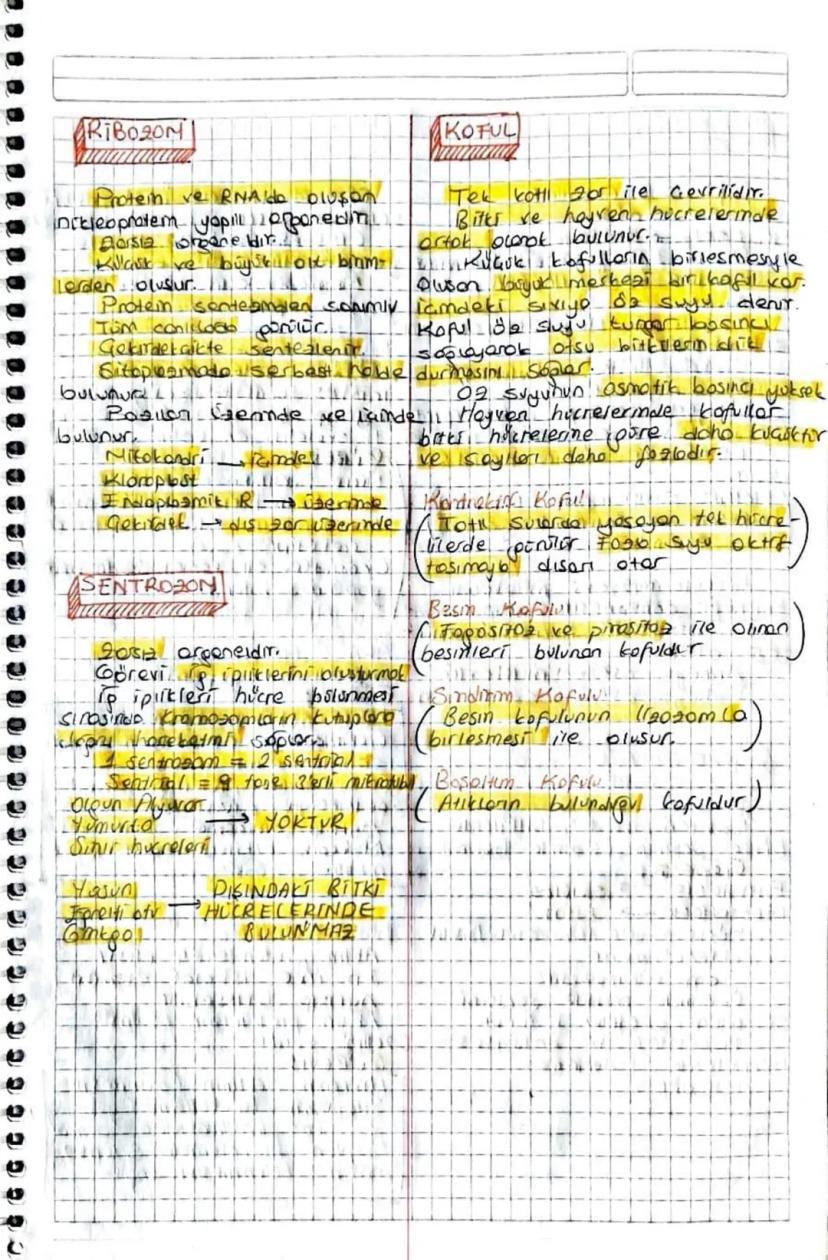 RİBOZOM
Protein ve RNA'da oluşan
nükleoprotein yapılı organeldir.
Zarsız organeldir.
Küçük ve büyük alt birim-
lerden oluşur.
Protein sentezinden sorumlu
Tüm canlılada görülür.
Çekirdekçikte sentezlenir.
Sitoplazmada serbest halde
bulunur.
Bazıları üzerinde ve içinde
bulunur.
Mitokondri → içinde
Kloroplast
Endoplazmik R → üzerinde
Çekirdek → dış zar üzerinde
SENTROZOM
Zarsız organeldir.
Görevi iğ ipliklerini oluşturmak
İğ iplikleri hücre bölünmesi
sırasında kromozomların kutuplara
doğru hareketini sağlar.
1 sentrozom = 2 sentriol
Sentriol = 9 tane 3'erli mikrotubul
Olgun Alyuvar
Yumurta → YOKTUR
Sinir hücreleri
Yosun
Eğrelti otu → DIŞINDAKİ BİTKİ
HÜCRELERİNDE
Ginkgo BULUNMAZ
KOFUL
Tek katlı zar ile çevrilidir.
Bitki ve hayvan hücrelerinde
ortak olarak bulunur.
Küçük kofulların birleşmesiyle
oluşan büyük merkezi bir koful var.
İçindeki sıvıya öz suyu denir.
Koful öz suyu turgor basıncı
sağlayarak otsu bitkilerin dik
durmasını sağlar.
Öz suyunun osmotik basıncı yüksek
Hayvan hücrelerinde kofullar
bitki hücrelerine göre daha küçüktür
ve sayıları daha fazladır.
Kontraktil Koful
(Tatlı sularda yaşayan tek hücre-
lilerde görülür. Fazla suyu aktif
taşımayla dışarı atar)
Besin Kofulu
(Fagositoz ve pinositoz ile alınan
besinleri bulunan kofuldur)
Sindirim Kofulu
(Besin kofulunun lizozomla
birleşmesi ile oluşur.)
Boşaltım Kofulu
(Atıkların bulunduğu kofuldur)